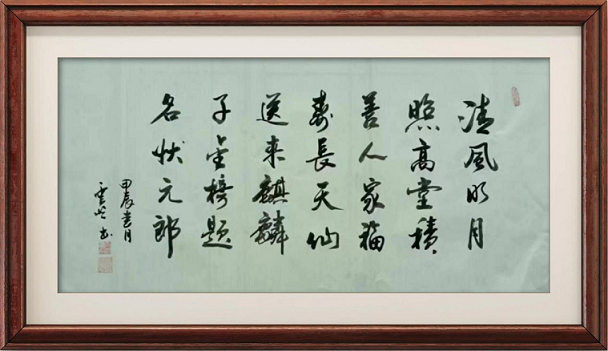 清風明月
照高堂積
善人家福
壽長天仙
送來麒麟
子金榜題
名狀元郎
甲辰春月
雲峰書